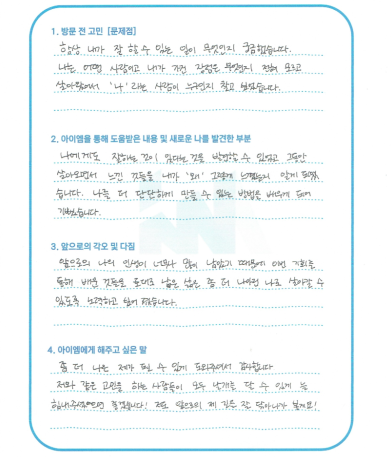 1. 방문 전 고민 [문제점]
항상 내가 잘 할 수 있는 일이 무엇인지 궁금했습니다.
나는 어떤 사람이고 내가 가진 장점은 무엇인지 전혀 모르고
살아왔어서 '나'라는 사람이 누구인지 찾고 싶었습니다.
2. 아이엠을 통해 도움받은 내용 및 새로운 나를 발견한 부분
나에게도 잘하는 것이 있다는 것을 발견할 수 있었고 그동안
살아오면서 느낀 것들을 내가 '왜' 그렇게 느꼈는지 알게 되었
습니다. 나를 더 단단하게 만들 수 있는 방법을 배우게 되어
기뻤습니다.
3. 앞으로의 각오 및 다짐
앞으로의 나의 인생이 너무나 많이 남았기 때문에 이번 기회를
통해 배운 것들을 토대로 남은 삶은 좀 더 나다운 나로 살아갈 수
있도록 노력하고 싶어졌습니다.
4. 아이엠에게 해주고 싶은 말
좀 더 나은 제가 될 수 있게 도와주셔서 감사합니다
저와 같은 고민을 하는 사람들이 모두 날개를 달 수 있게
힘내주셨으면 좋겠습니다! 저도 앞으로의 제 길은 잘 닦아나가 볼게요!